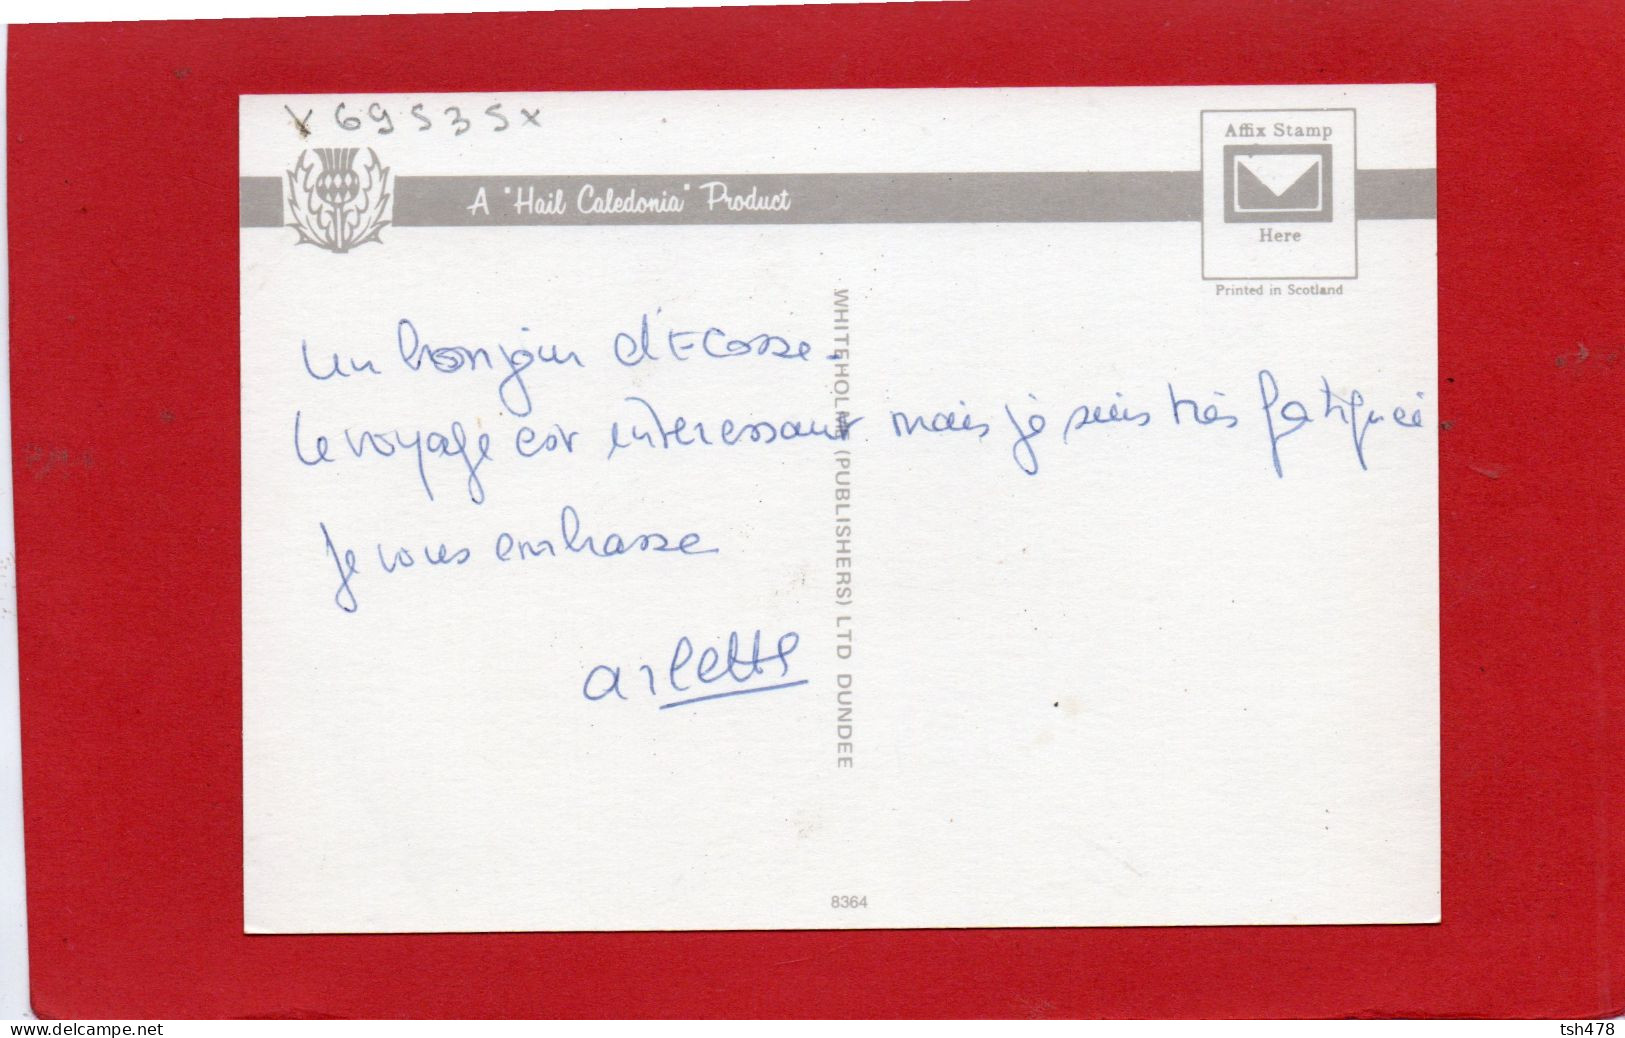 X 69535x
A "Hail Caledonia" Product
Affix Stamp
Here
Printed in Scotland
WHITEHOLME (PUBLISHERS) LTD DUNDEE
un bonjour d'Ecosse.
le voyage est interessant mais je suis très fatiguée.
Je vous embrasse
arlette
8364
www.delcampe.net
tsh478